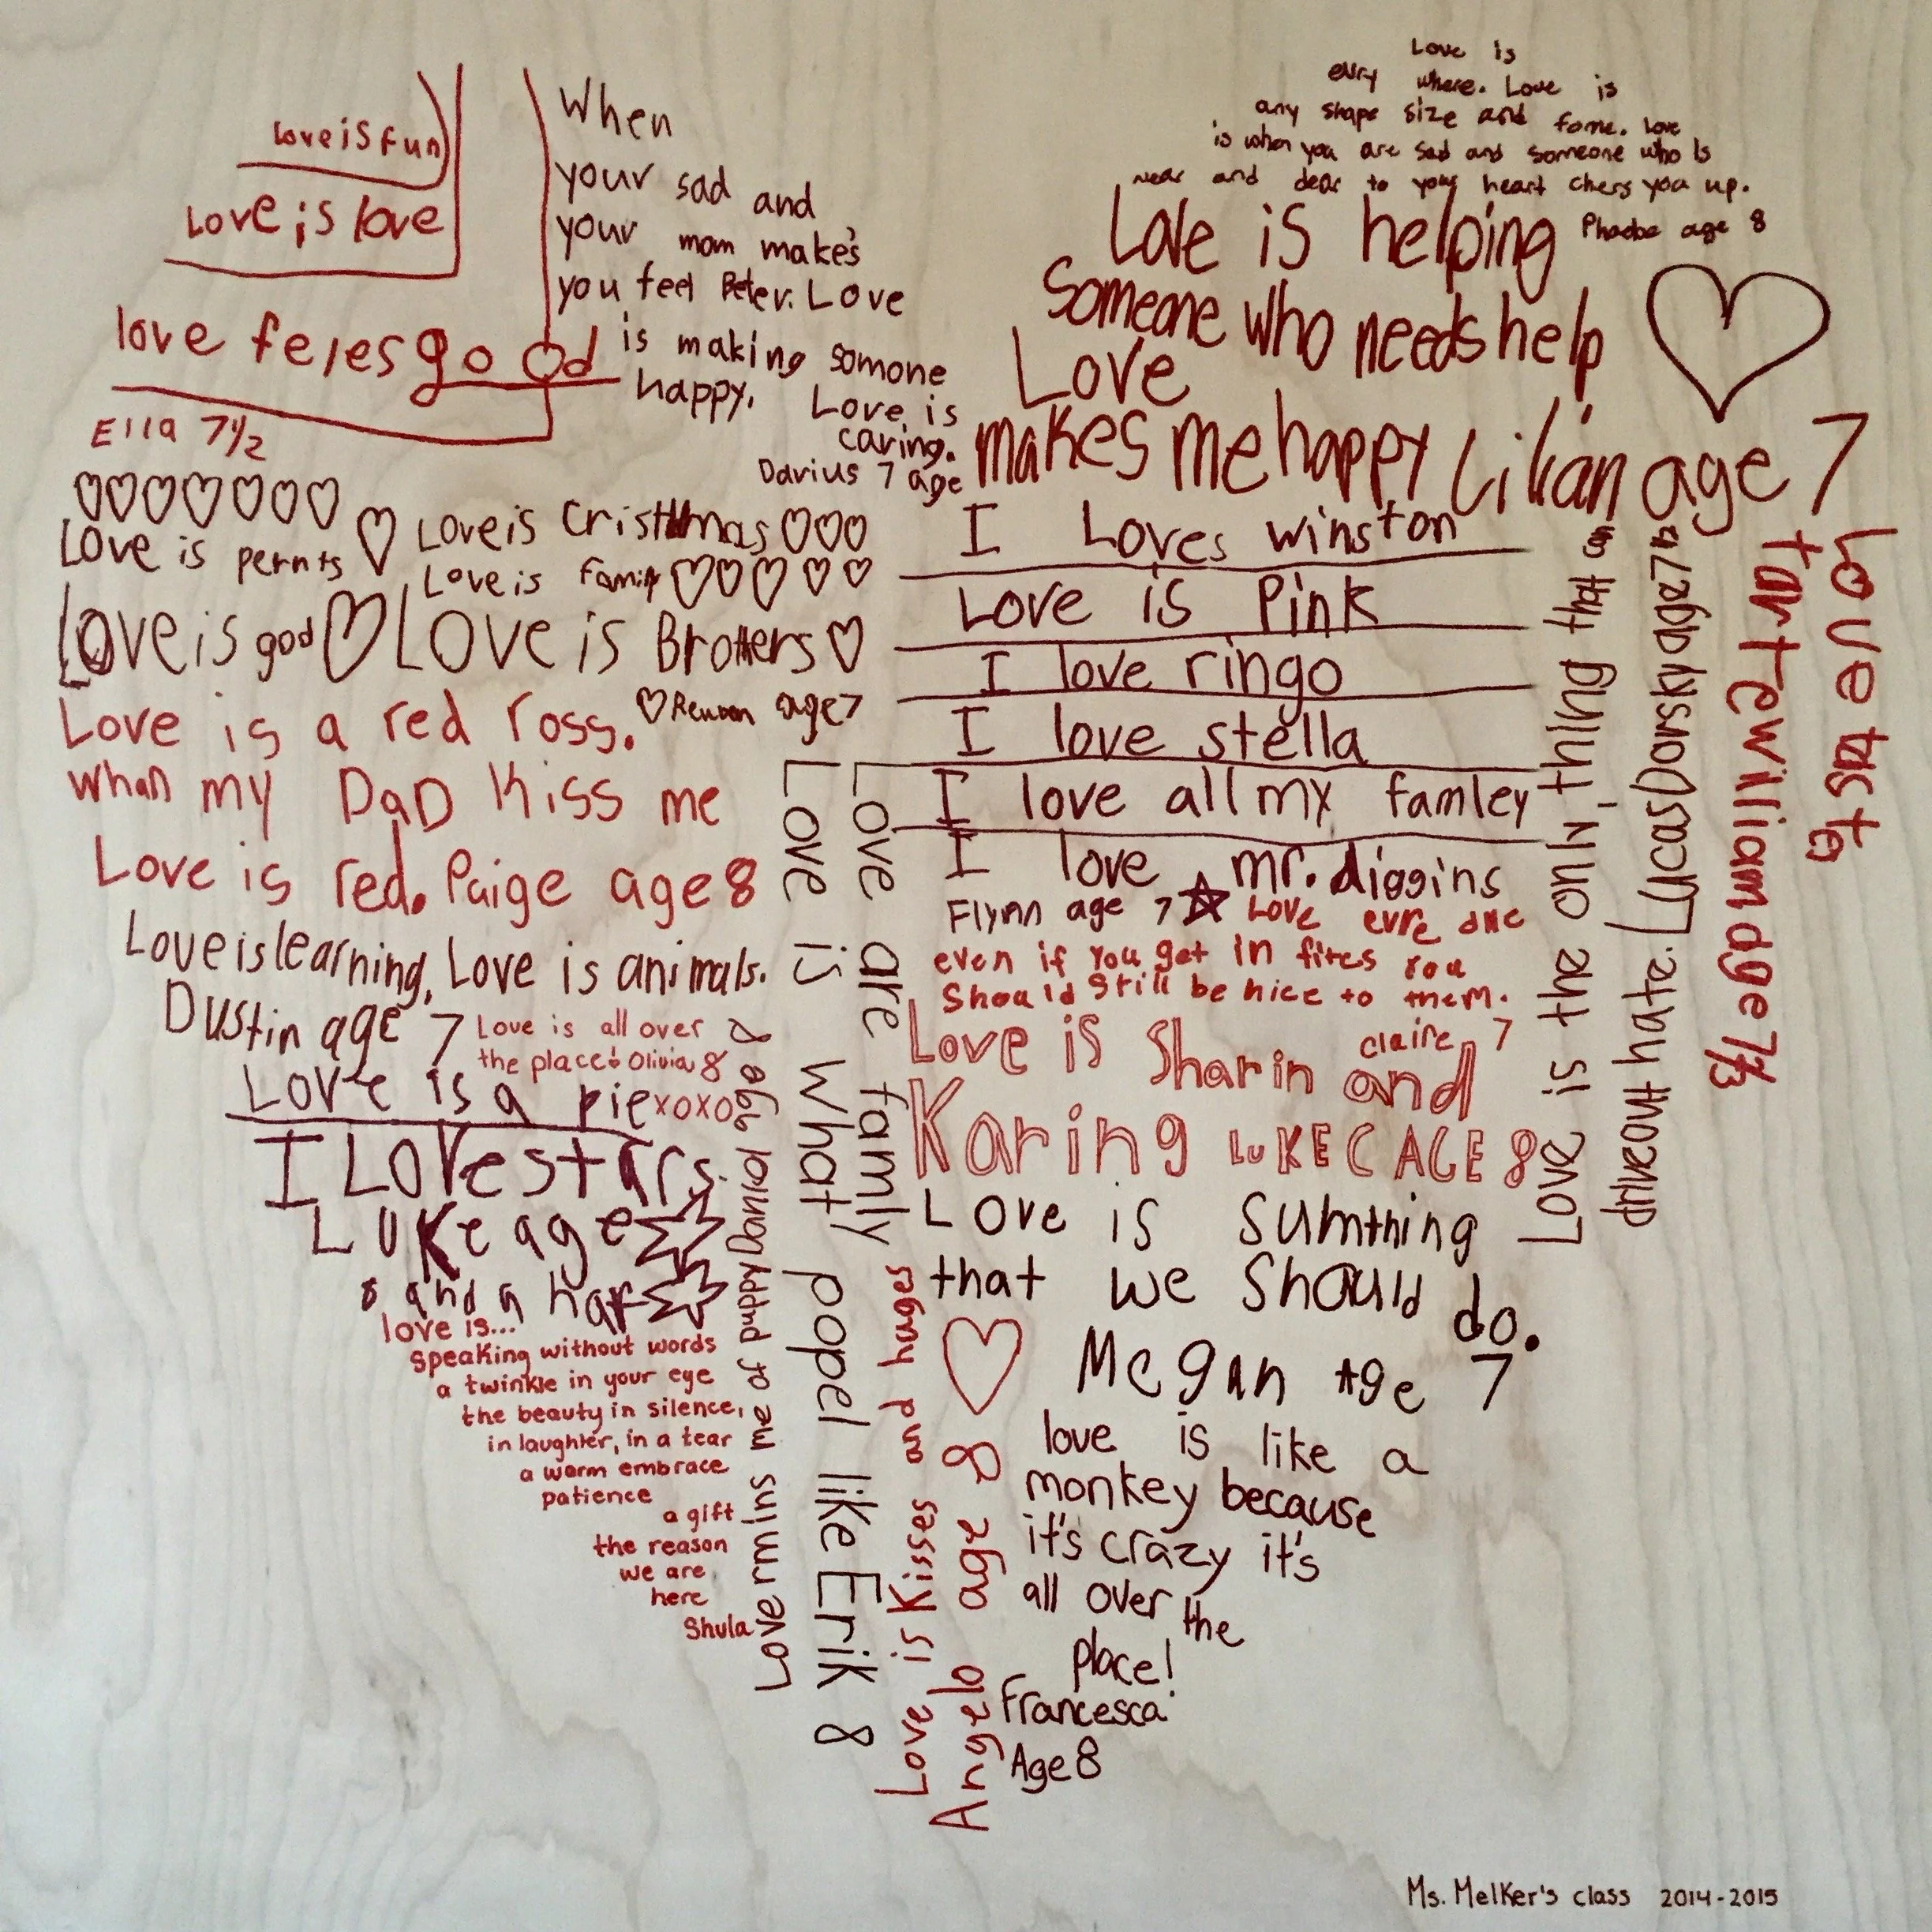 love is fun
Love is love
love feles good
Ella 7 1/2
When
your sad and
your mom make's
you feel Beter. Love
is making somone
happy. Love is
caring.
Darius 7 age
Love is
evry where. Love is
any shape size and fome. love
is when you are sad and someone who is
near and dear to your heart chers you up.
Phoebe age 8
Love is helping
Someone who needs help
Love
makes me happy Lilian age 7
Love is pernts
Love is Cristmas
Love is Family
Love is god Love is Brothers
Reuben age 7
Love is a red ross.
When my DaD Kiss me
Love is red. Paige age 8
Love is learning, Love is animals.
Dustin age 7
Love is all over
the place! Olivia 8
xoxo
Love is a pie
I Love stars.
Luke age
8 and a haf
love is...
speaking without words
a twinkle in your eye
the beauty in silence,
in laughter, in a tear
a warm embrace
patience
a gift
the reason
we are
here
Shula
Love rmins me of puppy Daniel age 8
Love are famly
Love is what popel like Erik 8
I Loves winston
Love is Pink
I love ringo
I love stella
I love all my famley
I love mr. diggins
Flynn age 7
Love evre one
even if You get in fites You
Should Still be nice to them.
Claire 7
Love is Sharin and
Karing LUKE C AGE 8
Love is sumthing
that we Should do.
Megan Age 7
Love is Kisses and huges
Angelo age 8
love is like a
monkey because
it's crazy it's
all over the
place!
Francesca
Age 8
Love is the only thing that can
driveout hate. Lucas Dorsky age 7 1/2
Love taste
tart ewilliam age 7 1/3
Ms. Melker's class 2014-2015